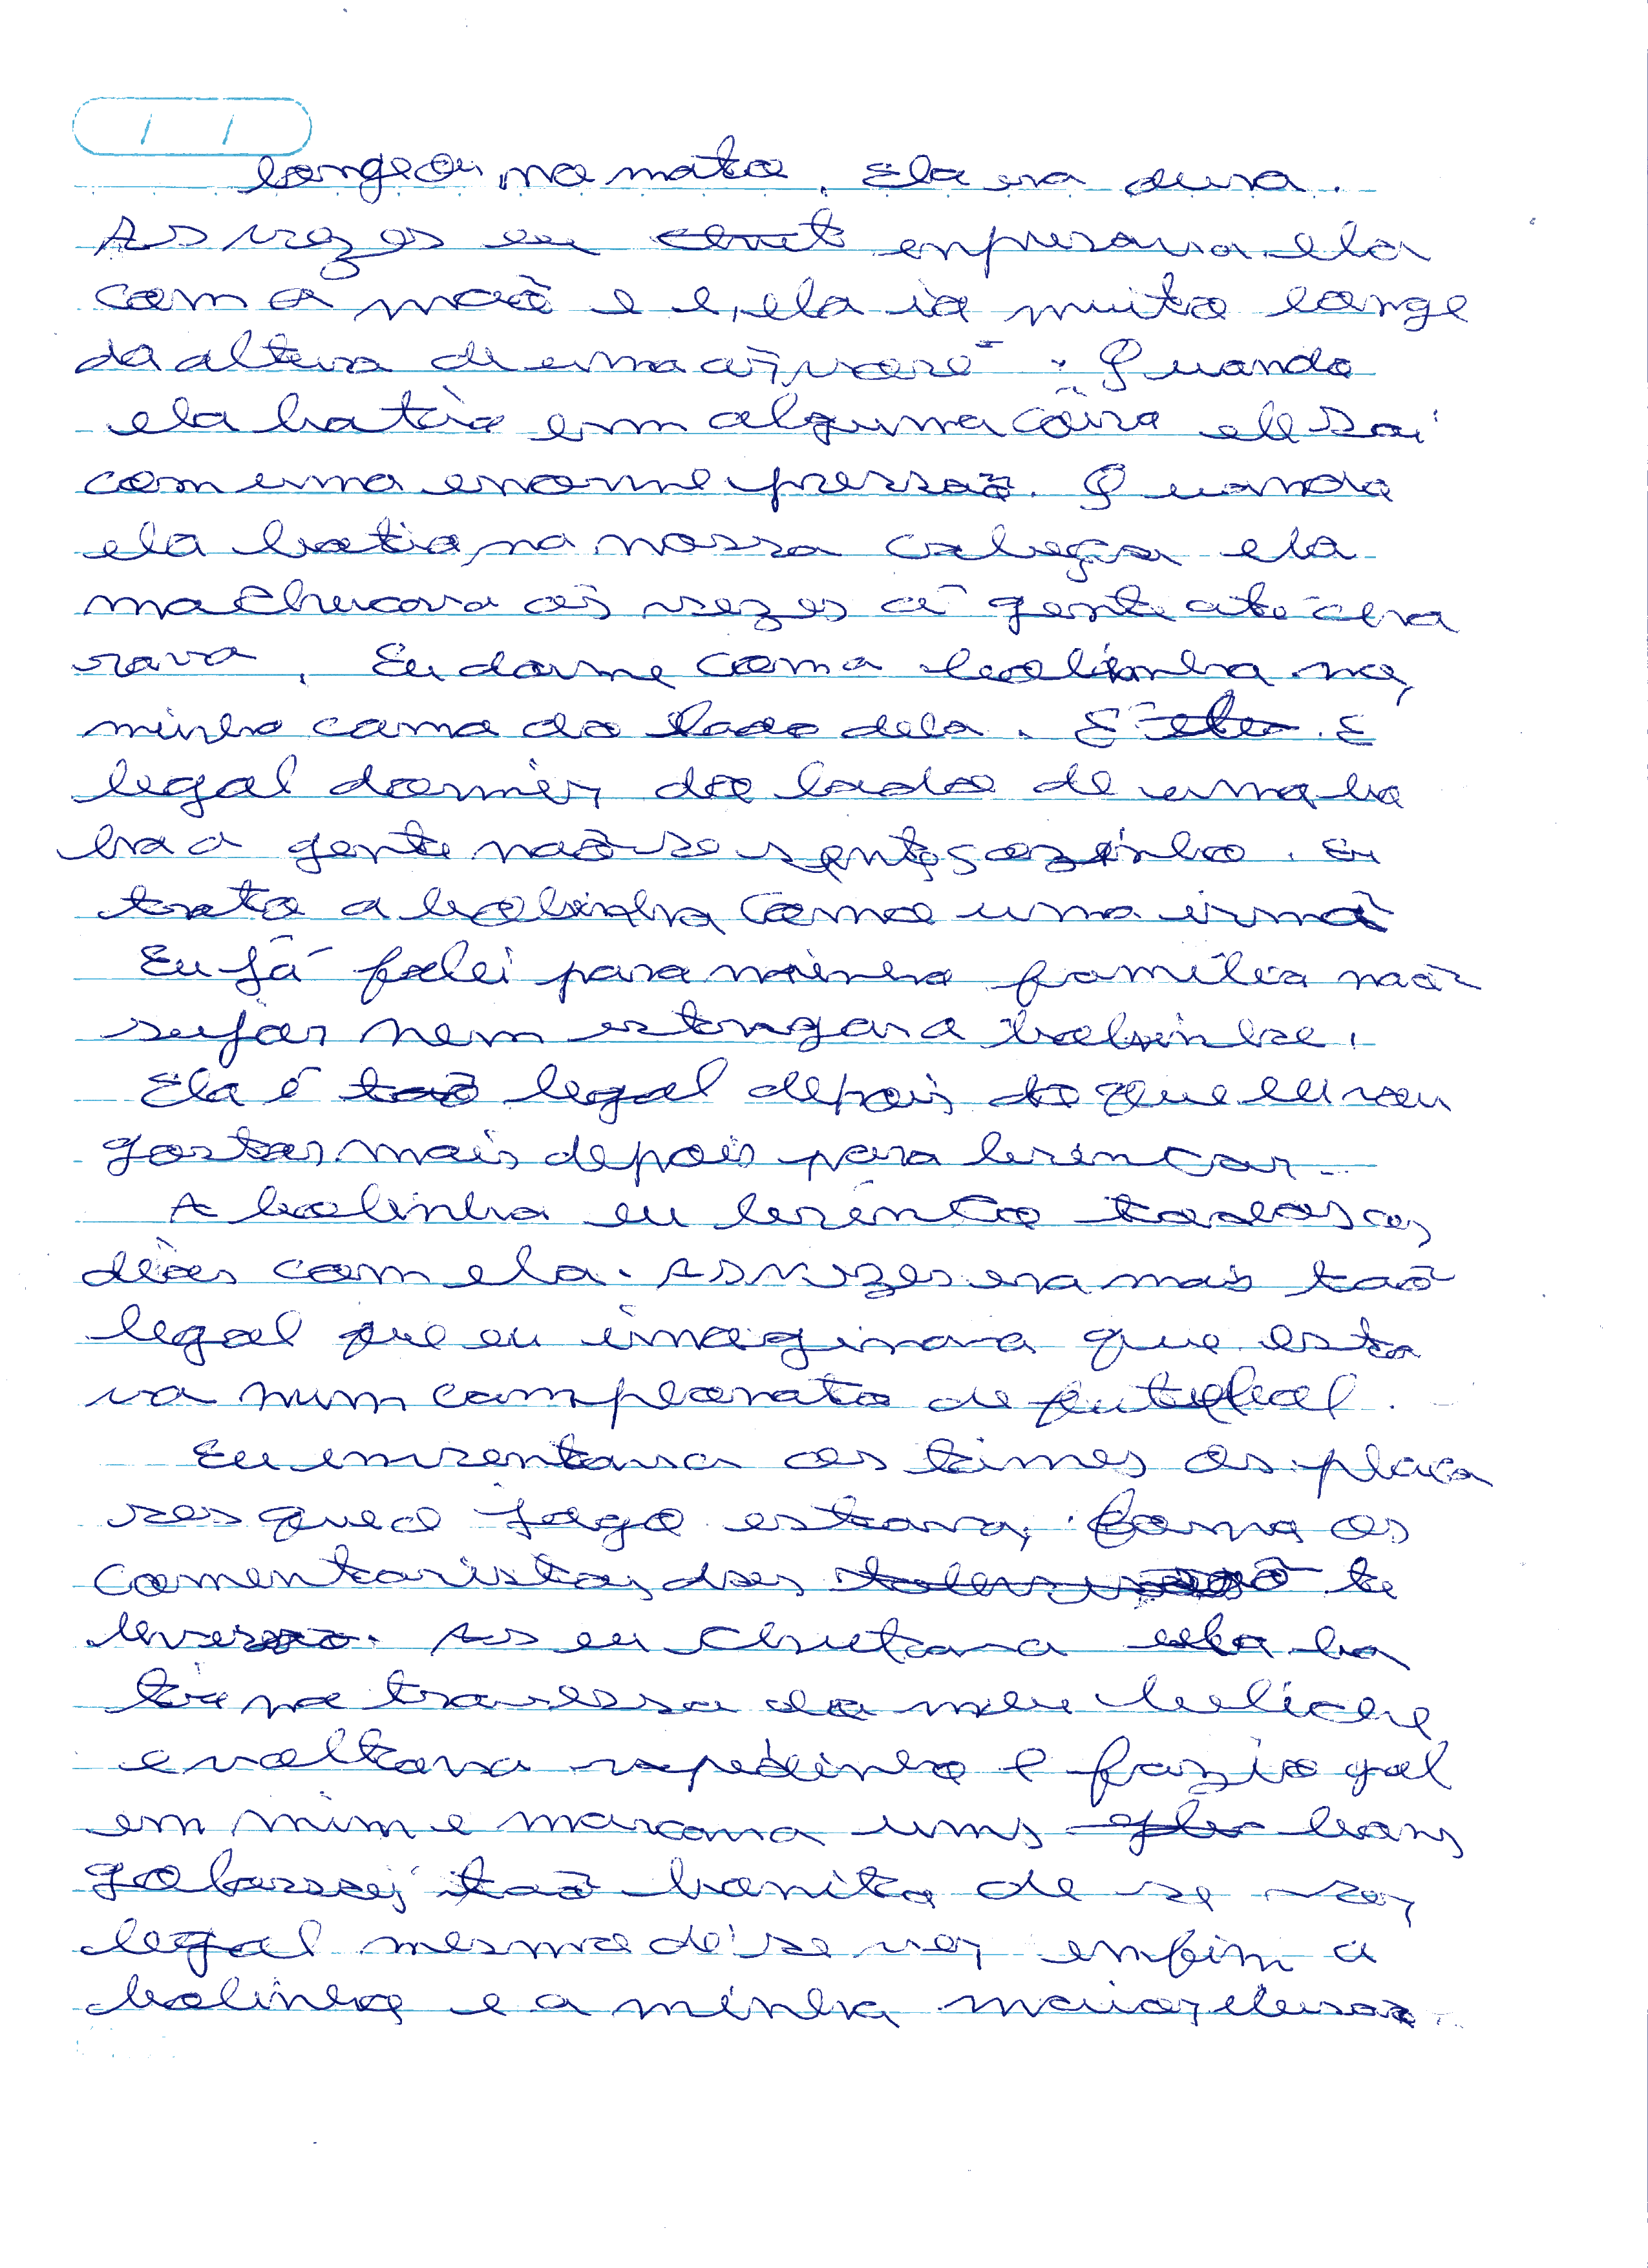 longe ou no mato. Ela era dura.
As vezes eu chut enpurava ela
com a maõ e e, ela ia muito longe
da altura de uma arvore. Quando
ela batia em alguma coisa ele sai
com uma enorme pressaõ. Quando
ela batia na nossa cabeça ela
machucava ás vezes a gente até cho
rava. Eu dorme com a bolinha na
minha cama do lado dela. E ela. E
legal dormir do lado de uma bo
la a gente naõ se sente sozinho. Eu
trato a bolinha como uma irmã
Eu já falei para minha família naõ
sujar nem estragar a bolinha.
Ela é taõ legal depois do que eu vou
gostar mais depois para brincar.
A bolinha eu brinco todos os
dias com ela. As vezes era mais taõ
legal que eu imaginava que esta
va num campeonato de futebol.
Eu enventava os times os placa
res que o jogo estava, como os
comentaristas das te
levisão. As eu chutava ela ba
tia na travessa do meu beliche
e voltava rapidinho e fazia gol
em mim e marcava ums bons
golassos taõ bonito de se ver
legal mesmo de se ver enfim a
bolinha e a minha maior